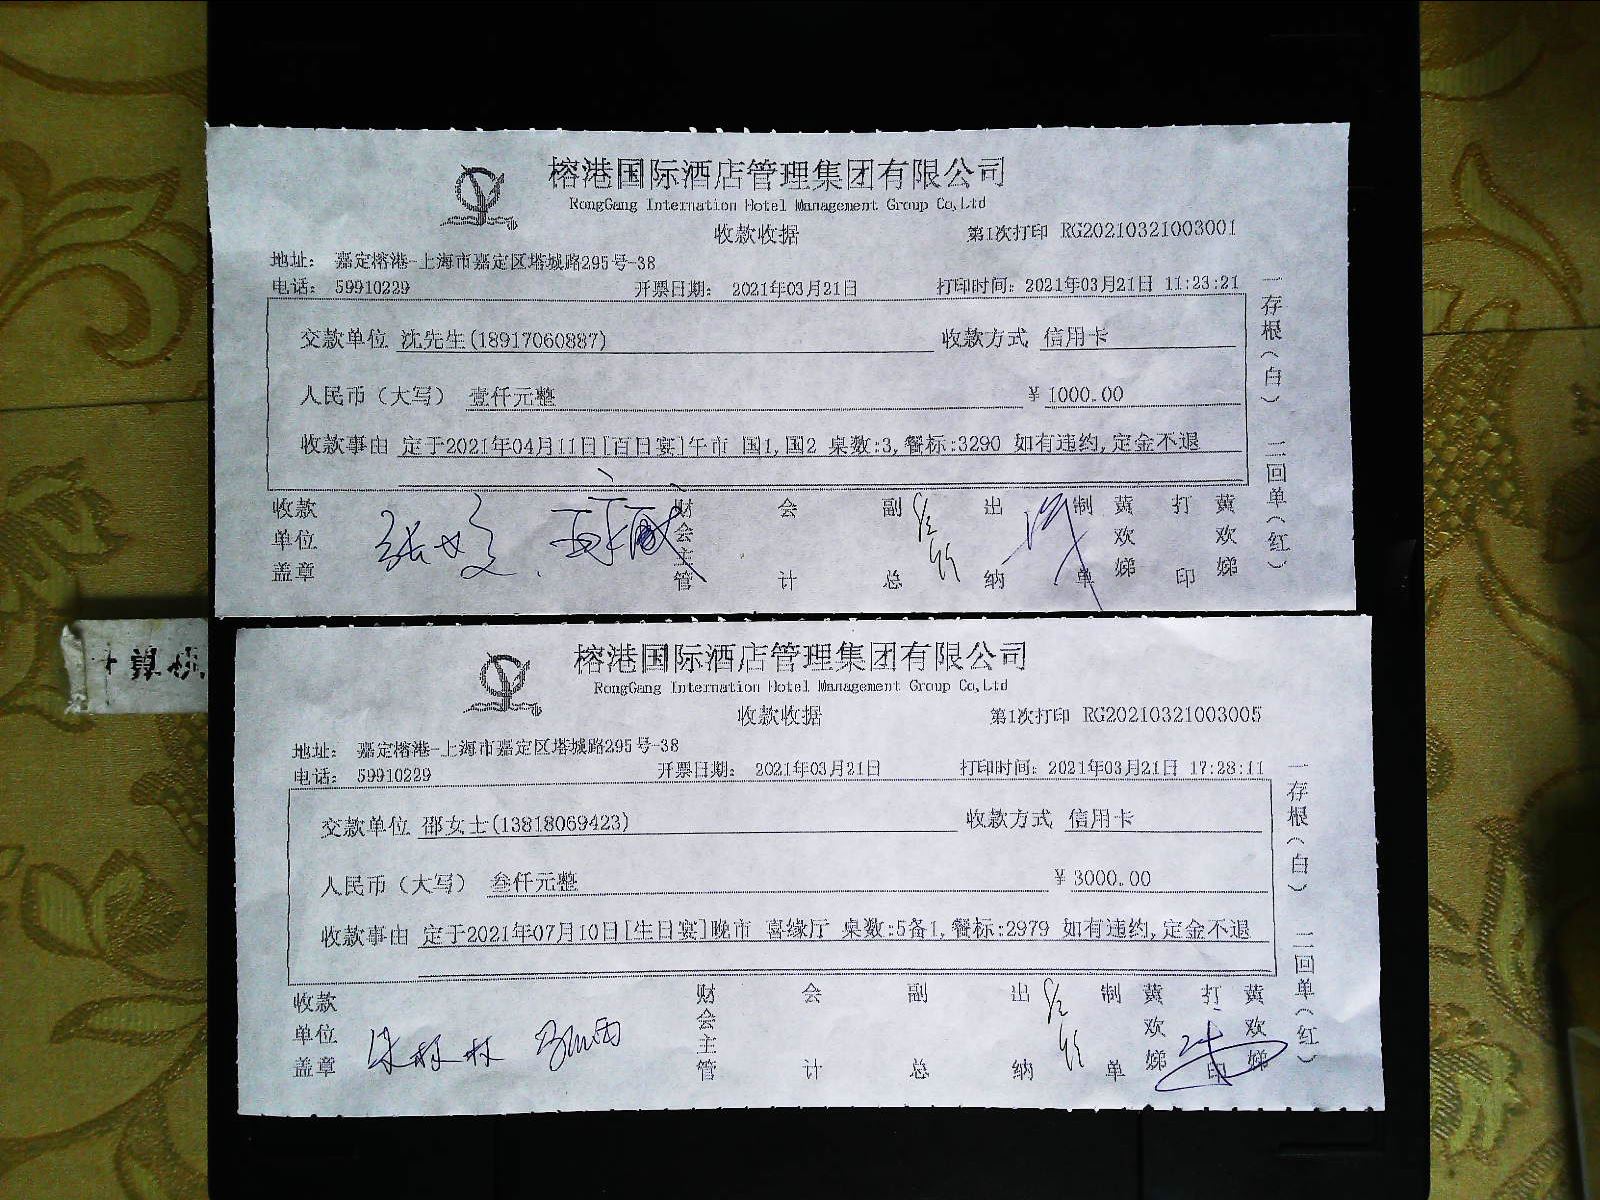 榕港国际酒店管理集团有限公司
RongGang Internation Hotel Management Group Co,Ltd
收款收据 第1次打印 RG20210321003001
地址： 嘉定榕港-上海市嘉定区塔城路295号-38
电话： 59910229 开票日期： 2021年03月21日 打印时间：2021年03月21日 11:23:21
交款单位 沈先生(18917060887) 收款方式 信用卡
人民币（大写） 壹仟元整 ￥ 1000.00
收款事由 定于2021年04月11日[百日宴]午市 国1,国2 桌数:3,餐标:3290 如有违约,定金不退
收款单位盖章 财会主管 会计 副总 出纳 制单 黄欢娣 打印 黄欢娣
一存根（白） 二回单（红）
榕港国际酒店管理集团有限公司
RongGang Internation Hotel Management Group Co,Ltd
收款收据 第1次打印 RG20210321003005
地址： 嘉定榕港-上海市嘉定区塔城路295号-38
电话： 59910229 开票日期： 2021年03月21日 打印时间：2021年03月21日 17:28:11
交款单位 邵女士(13818069423) 收款方式 信用卡
人民币（大写） 叁仟元整 ￥ 3000.00
收款事由 定于2021年07月10日[生日宴]晚市 喜缘厅 桌数:5备1,餐标:2979 如有违约,定金不退
收款单位盖章 财会主管 会计 副总 出纳 制单 黄欢娣 打印 黄欢娣
一存根（白） 二回单（红）